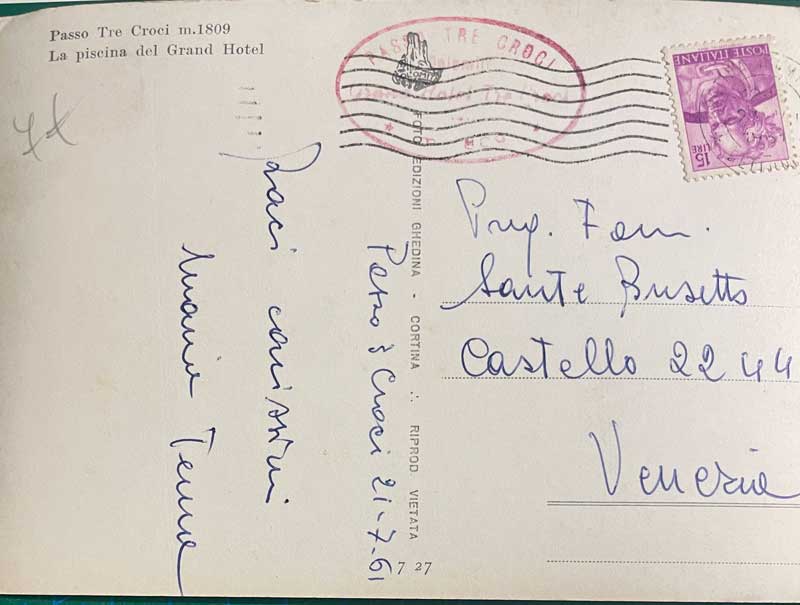 Passo Tre Croci m.1809
La piscina del Grand Hotel
PASSO TRE CROCI
Grand Hotel Tre Croci
POSTE ITALIANE
15 LIRE
FOTO EDIZIONI GHEDINA - CORTINA ∴ RIPROD. VIETATA
7 27
Passo 3 Croci 21-7-61
Baci carissimi
Maria
Fam.
Sante Busetto
Castello 2244
Venezia